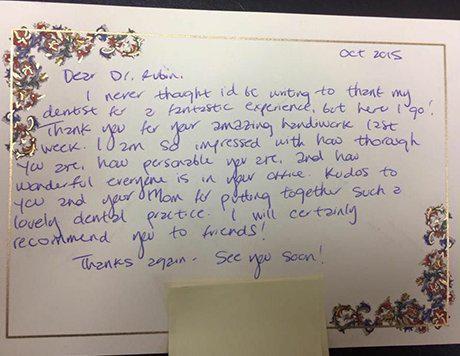 Oct 2015
Dear Dr. Rubin,
I never thought i'd be writing to thank my
dentist for a fantastic experience, but here I go!
Thank you for your amazing handiwork last
week. I am so impressed with how thorough
you are, how personable you are, and how
wonderful everyone is in your office. Kudos to
you and your Mom for putting together such a
lovely dental practice. I will certainly
recommend you to friends!
Thanks again. See you soon!